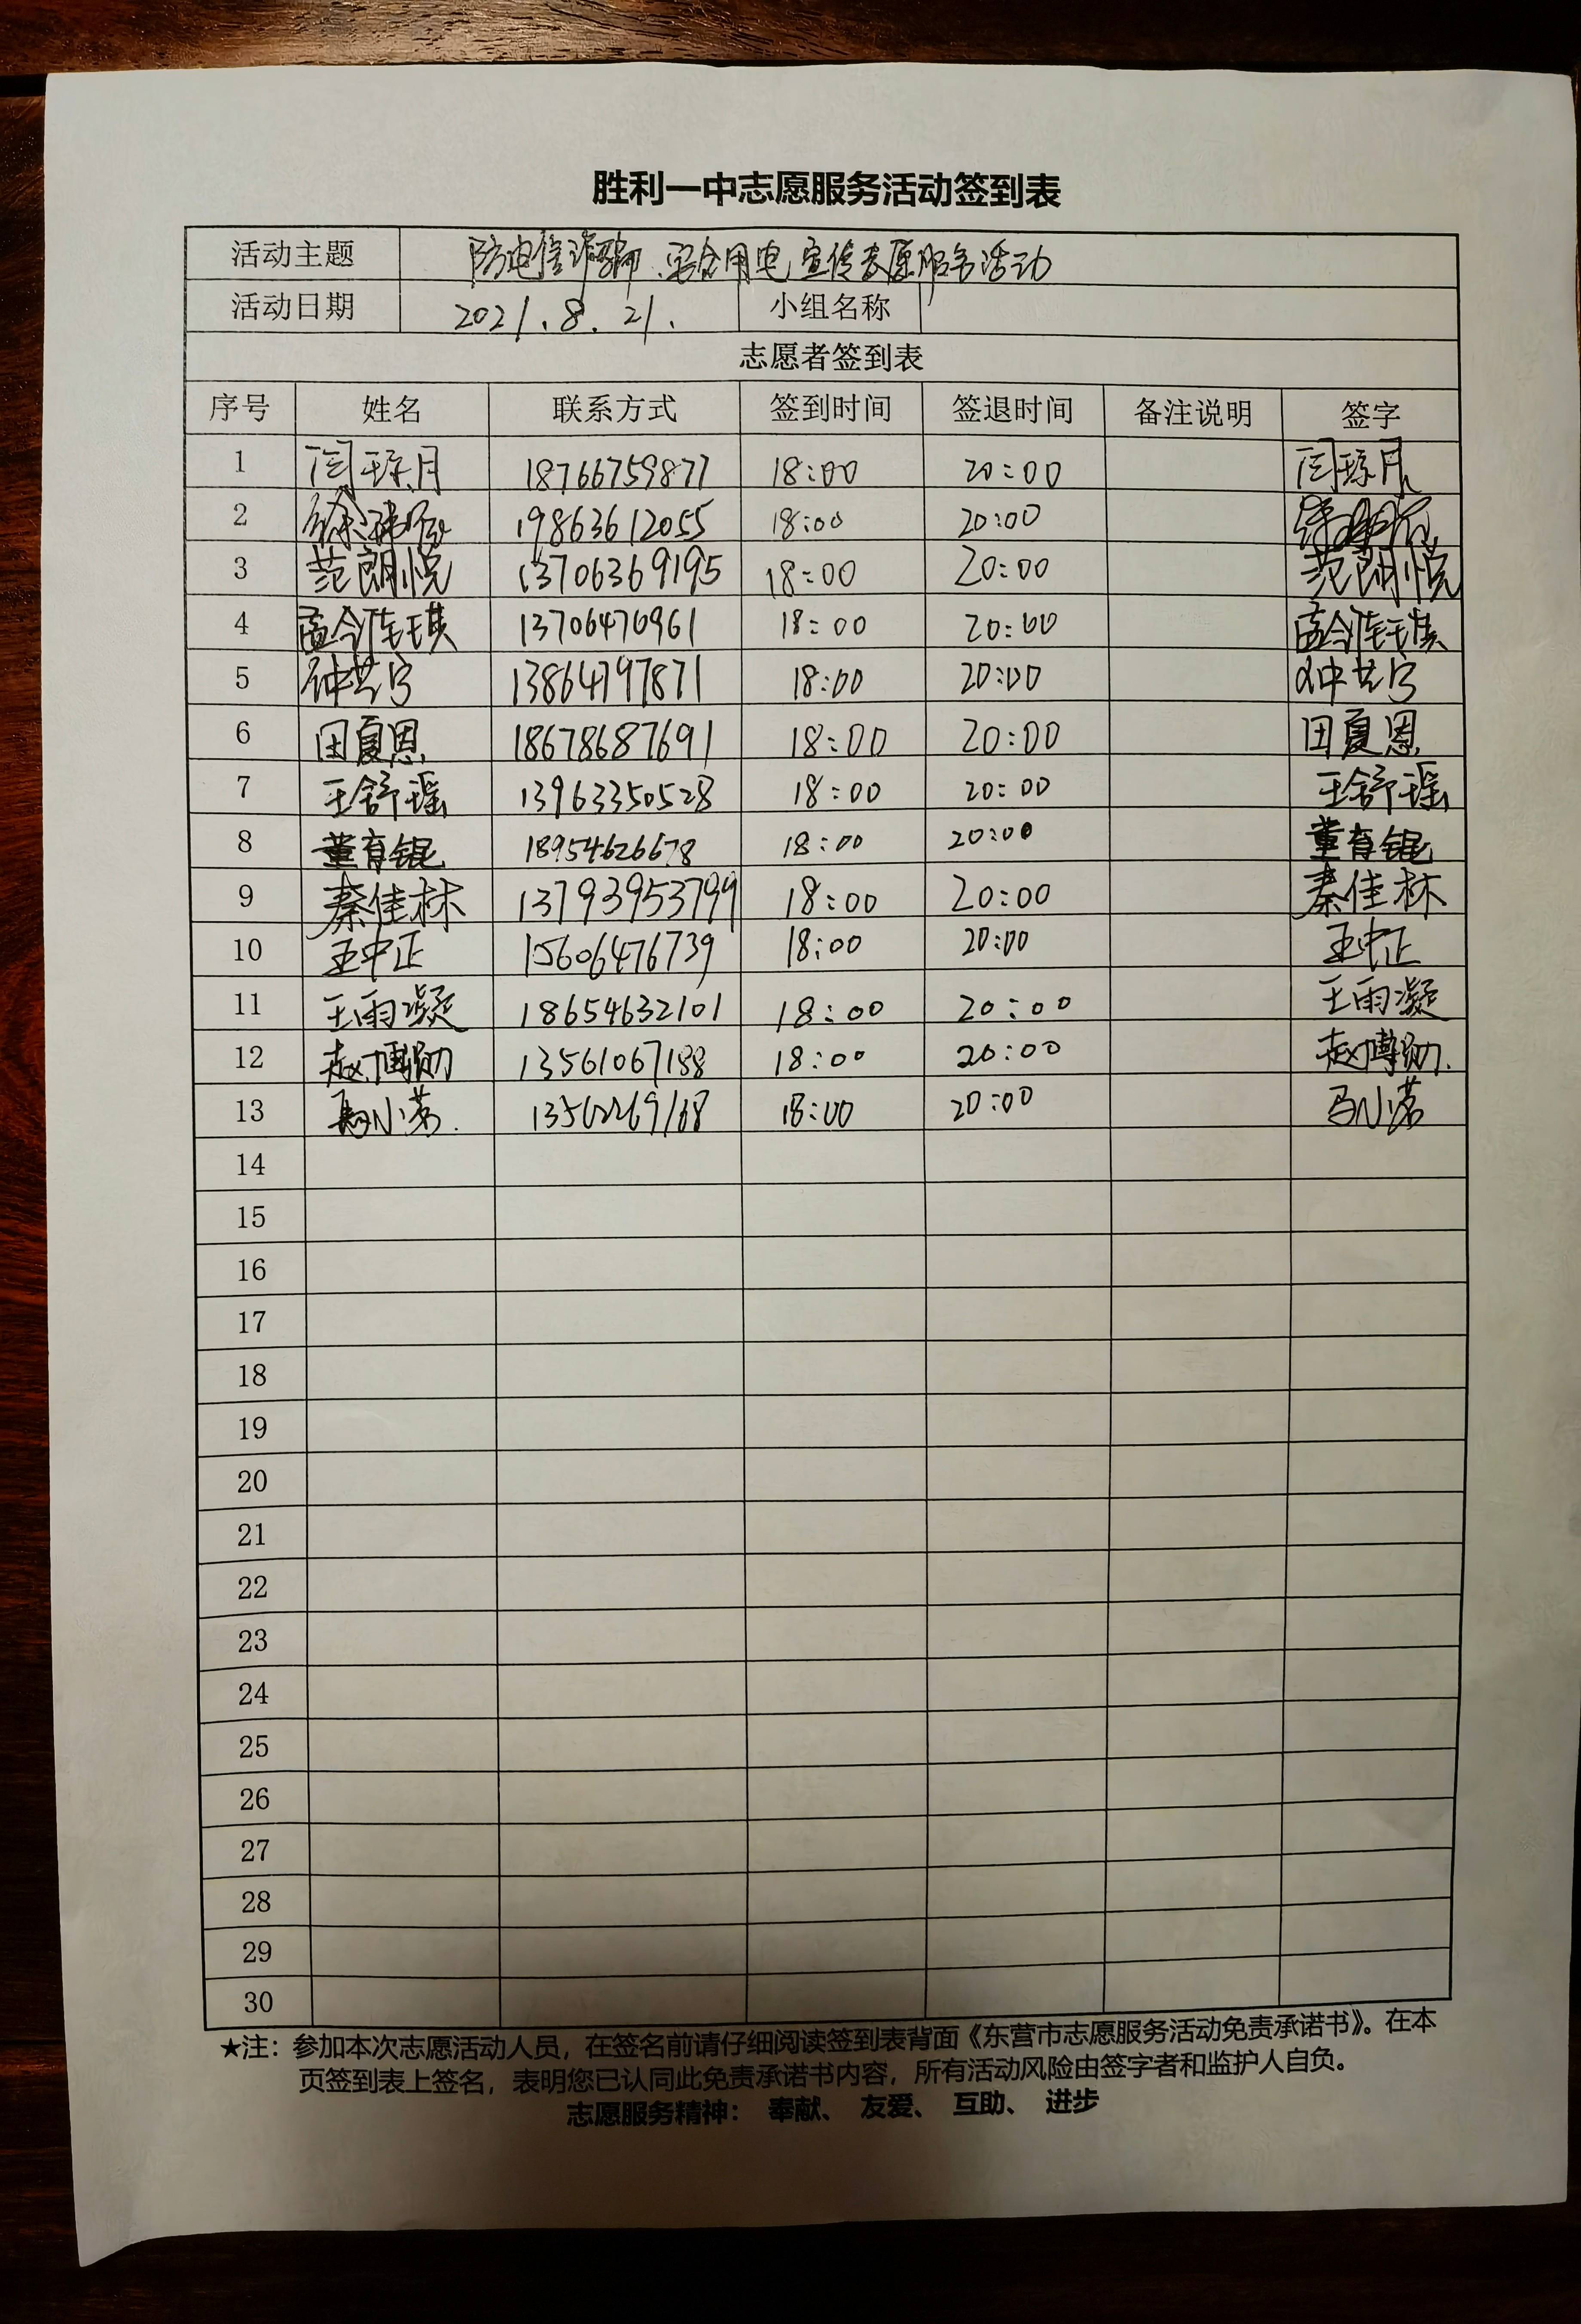 胜利一中志愿服务活动签到表
活动主题 防电信诈骗、安全用电宣传志愿服务活动
活动日期 2021.8.21. 小组名称
志愿者签到表
序号 姓名 联系方式 签到时间 签退时间 备注说明 签字
1 闫琼月 18766759877 18:00 20:00 闫琼月
2 徐 19863612055 18:00 20:00
3 范朗悦 13706369195 18:00 20:00 范朗悦
4 孟令 琪 13706476961 18:00 20:00 孟令 琪
5 钟艺宁 13864797871 18:00 20:00 钟艺宁
6 田夏恩 18678687691 18:00 20:00 田夏恩
7 王舒瑶 13963350528 18:00 20:00 王舒瑶
8 董育锟 18954626678 18:00 20:00 董育锟
9 秦佳林 13793953799 18:00 20:00 秦佳林
10 王中正 15606476739 18:00 20:00 王中正
11 王雨凝 18654632101 18:00 20:00 王雨凝
12 赵博勋 13561067188 18:00 20:00 赵博勋.
13 马小茗. 13562269168 18:00 20:00 马小茗
14
15
16
17
18
19
20
21
22
23
24
25
26
27
28
29
30
★注：参加本次志愿活动人员，在签名前请仔细阅读签到表背面《东营市志愿服务活动免责承诺书》。在本
页签到表上签名，表明您已认同此免责承诺书内容，所有活动风险由签字者和监护人自负。
志愿服务精神： 奉献、 友爱、 互助、 进步